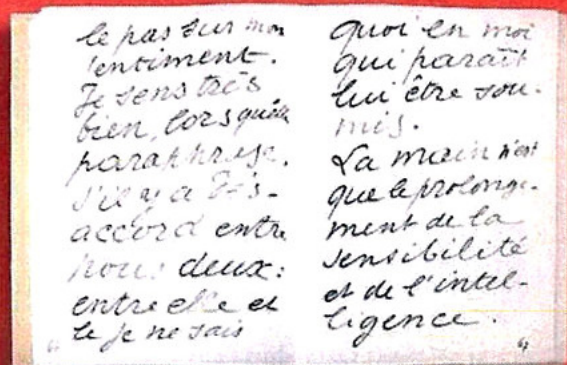 le pas sur mon
sentiment.
Je sens très
bien, lorsqu'elle
paraphrase,
s'il y a dés-
accord entre
nous deux:
entre elle et
le je ne sais
quoi en moi
qui paraît
lui être sou-
mis.
La main n'est
que le prolonge-
ment de la
sensibilité
et de l'intel-
ligence.